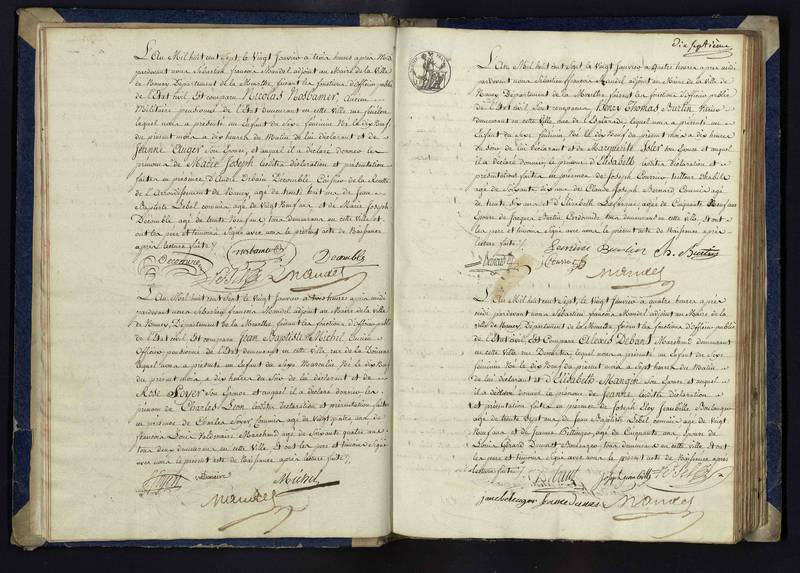 L'An Mil huit cent Sept, le Vingt Janvier a trois heures après Midi
pardevant nous Sébastien françois Mandel adjoint au Maire de la Ville
de Nancy Département de la Meurthe, faisant les fonctions d'officier public
de l'Etat civil, Est comparu Nicolas Nosbaumer, ancien
Militaire pensionné de l'Etat demeurant en cette Ville rue
lequel nous a présenté un Enfant du Sexe féminin Né le dix Neuf
du présent mois a dix heures du Matin de lui déclarant et de
Jeanne Auger son Epouse, et auquel il a déclaré donner les
prénoms de Marie Joseph lesdites déclaration et présentation
faites en présence d'André Urbain Décomble Caissier de la Recette
de l'Arrondissement de Nancy agé de trente huit ans de Jean
Baptiste Lebel commis agé de Vingt Neuf ans et de Marie Joseph
Décomble agé de trente Neuf ans tous demeurans en cette Ville Et
ont les pere et témoins Signé avec nous le présent acte de Naissance
après lecture faite ./.
Nosbaumer Decomble
Mandel
L'An Mil huit cent Sept, le Vingt Janvier a trois heures après midi
pardevant nous Sébastien françois Mandel adjoint au Maire de la Ville
de Nancy, Département de la Meurthe, faisant les fonctions d'officier public
de l'Etat civil, Est comparu Jean Baptiste Michel, ancien
Officier pensionné de l'Etat demeurant en cette Ville rue de la Douane
lequel nous a présenté un Enfant du Sexe Masculin Né le dix Neuf
du présent mois a dix heures du Soir de lui déclarant et de
Rose Soyer Son Epouse et auquel il a déclaré donner les
prénoms de Charles Léon lesdites déclaration et présentation faites
en présence de Charles Soyer Commis agé de Vingt quatre ans de
françois Marchand agé de Soixante quatre ans
tous deux demeurans en cette Ville Et ont les pere et témoins Signé
avec nous le présent acte de Naissance après lecture faite ./.
Soyer Michel
Mandel
Dix Septieme
L'An Mil huit cent Sept, le Vingt Janvier a quatre heures après midi
pardevant nous Sébastien françois Mandel adjoint au Maire de la Ville de
Nancy, Département de la Meurthe faisant les fonctions d'officier public
de l'Etat civil, Est comparu Henry Thomas Burtin
demeurant en cette Ville, rue de lequel nous a présenté un
Enfant du Sexe féminin Né le dix Neuf du présent mois a dix heures
du Soir de lui déclarant et de Marguerite Solet son Epouse et auquel
il a déclaré donner le prénom d'Elisabeth lesdites déclaration et
présentation faites en présence de Joseph tailleur d'habits
agé de Soixante dix ans de Claude Joseph Bernard Commis agé
de trente Six ans et d'Elisabeth agée de Cinquante Neuf ans
Epouse de Jacques Burtin Cordonnier tous demeurans en cette Ville, Et ont
les pere et témoins Signé avec nous le présent acte de Naissance après
lecture faite ./.
Burtin
Mandel
L'An Mil huit cent Sept, le Vingt Janvier a quatre heures après
midi pardevant nous Sébastien françois Mandel adjoint au Maire de la
Ville de Nancy, Département de la Meurthe, faisant les fonctions d'officier public
de l'Etat civil, Est Comparu Alexis Debant Marchand demeurant
en cette Ville rue lequel nous a présenté un Enfant du Sexe
féminin Né le dix Neuf du présent mois a Sept heures du Matin
de lui déclarant et d'Elisabeth Mangin son Epouse et auquel
il a déclaré donner le prénom de Jeanne lesdites déclaration
et présentation faites en présence de Joseph Boulanger
agé de trente Sept ans de Jean Baptiste Lebel commis agé de Vingt
Neuf ans et de Jeanne agée de Cinquante ans Epouse de
Louis Gérard Boulanger tous demeurans en cette Ville. Et ont
les pere et témoins Signé avec nous le présent acte de Naissance après
lecture faite ./.
Debant
Mandel